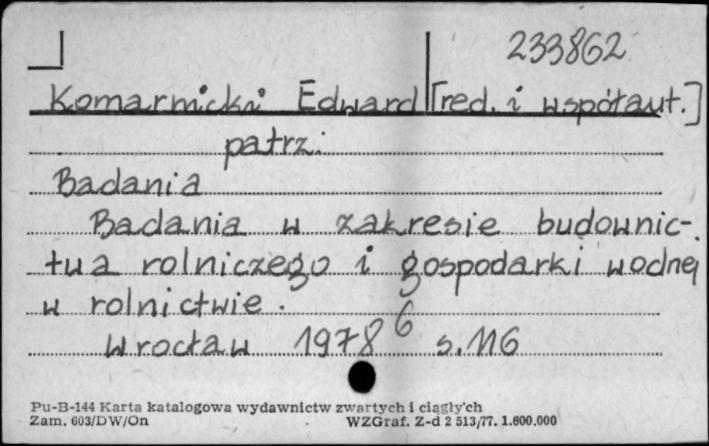 233862
Komarnicki Edward [red. i współaut.]
patrz:
Badania
Badania w zakresie budownic-
twa rolniczego i gospodarki wodnej
w rolnictwie.
Wrocław 1978 6 s. 116
Pu-B-144 Karta katalogowa wydawnictw zwartych i ciągłych
Zam. 603/DW/On WZGraf. Z-d 2 513/77. 1.600.000